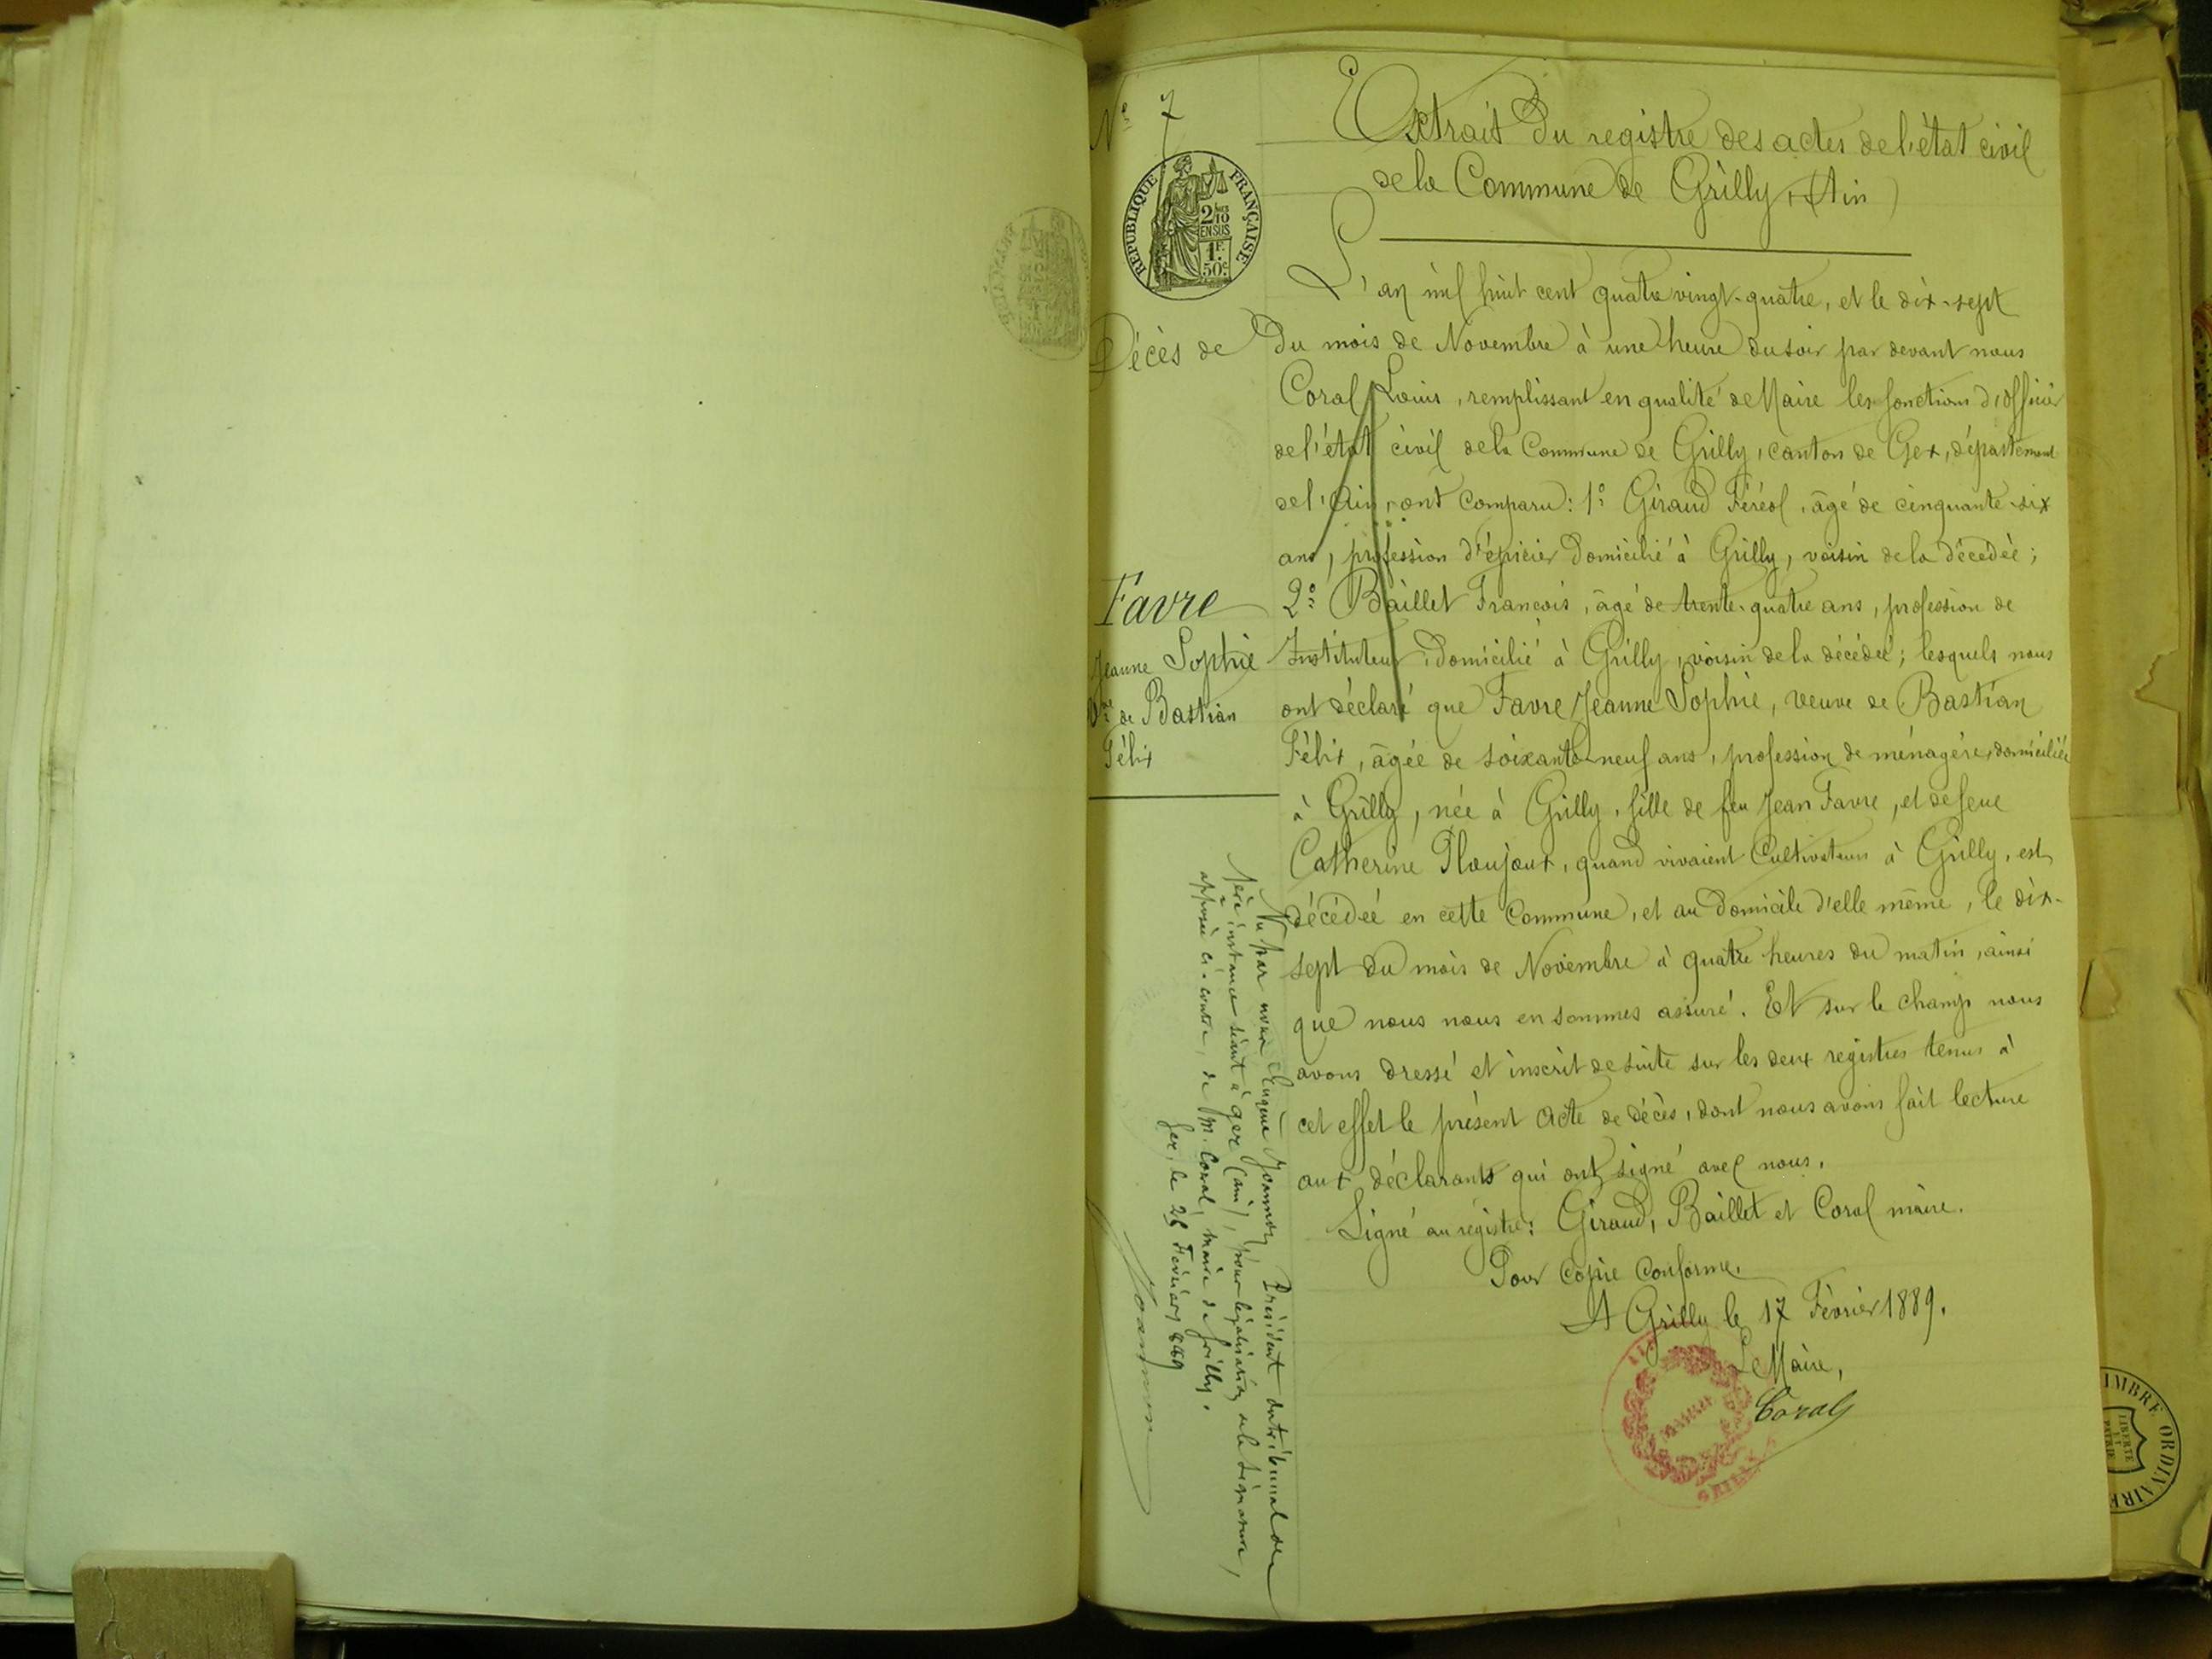 N° 7
REPUBLIQUE FRANÇAISE
2/10
EN SUS
1F
50c
Extrait du registre des actes de l'état civil
de la Commune de Grilly, (Ain)
Décès de
Favre
Jeanne Sophie
Vve de Bastian
Félix
L'an mil huit cent quatre vingt-quatre, et le dix-sept
du mois de Novembre à une heure du soir par devant nous
Coral Louis, remplissant en qualité de Maire les fonctions d'officier
de l'état civil de la Commune de Grilly, canton de Gex, département
de l'Ain, ont comparu: 1° Giraud Féréol, âgé de cinquante-six
ans, profession d'épicier domicilié à Grilly, voisin de la décédée;
2° Baillet François, âgé de trente-quatre ans, profession de
Instituteur, domicilié à Grilly, voisin de la décédée; lesquels nous
ont déclaré que Favre Jeanne Sophie, veuve de Bastian
Félix, âgée de soixante-neuf ans, profession de ménagère, domiciliée
à Grilly, née à Grilly, fille de feu Jean Favre, et de feue
Catherine quand vivaient Cultivateurs à Grilly, est
décédée en cette Commune, et au domicile d'elle même, le dix-
sept du mois de Novembre à quatre heures du matin, ainsi
que nous nous en sommes assuré. Et sur le champ nous
avons dressé et inscrit de suite sur les deux registres tenus à
cet effet le présent Acte de décès, dont nous avons fait lecture
aux déclarants qui ont signé avec nous.
Signé au registre: Giraud, Baillet et Coral maire.
Pour Copie Conforme.
A Grilly le 17 Février 1889.
Le Maire,
Coral
GRILLY
Vu par nous Eugène Joannon Président du tribunal de
1ère instance séant à Gex (ain), pour légalisation de la signature,
apposée ci-contre, de M. Coral, maire de Grilly.
Gex, le Février
Joannon
TIMBRE ORDINAIRE
LIBERTÉ
ET
PATRIE